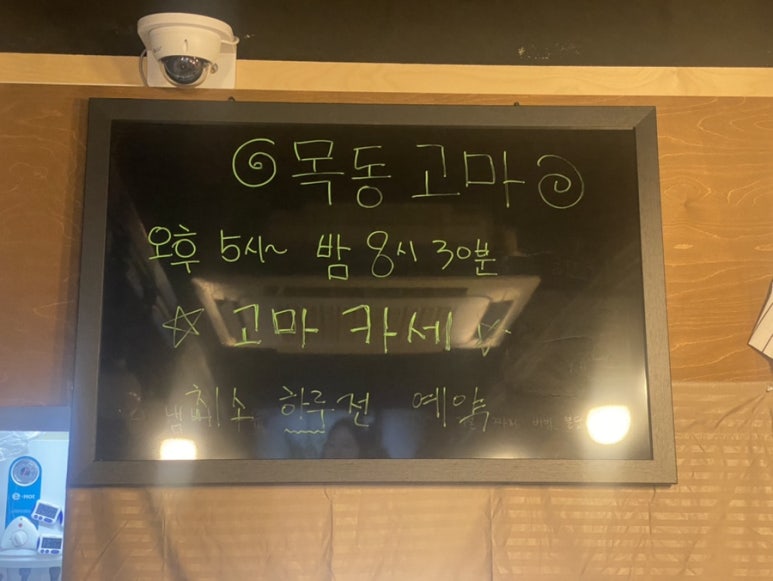 목동 고마
오후 5시~ 밤 8시 30분
☆ 고마 카세 ☆
최소 하루전 예약
e-HOT